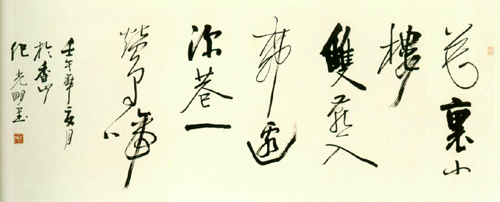 花裏小
樓
雙燕入
柳邊
深巷一
鶯啼
壬午年夏月
於香山
紀光明書